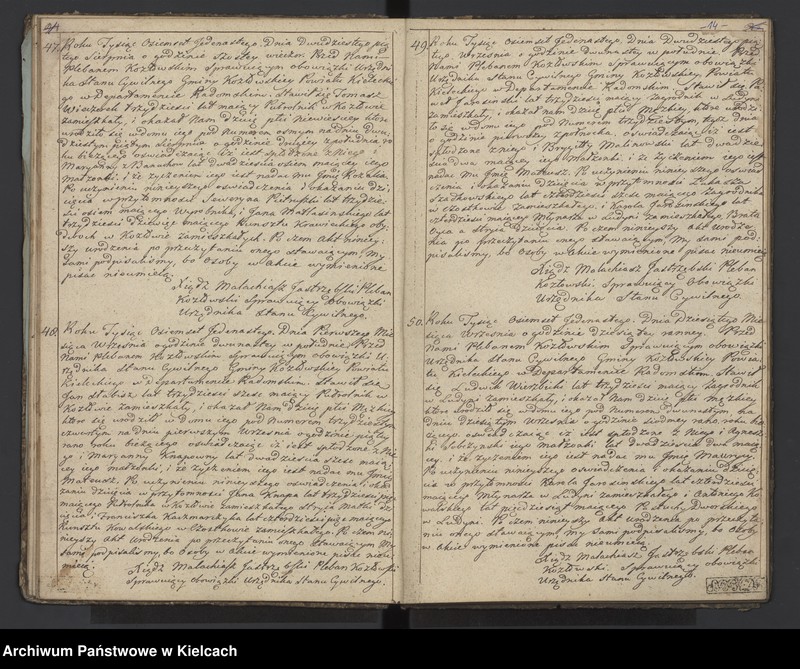 47. Roku Tysiąc Osiemset Jedenastego. Dnia Dwudziestego
Sierpnia o godzinie Szostey wieczor. Przed Nami
Plebanem Kozłowskim Sprawuiącym obowiązki Urzędni-
ka Stanu Cywilnego Gminy Kozłowskiey Powiatu Kielecki-
go w Departamencie Radomskim. Stawił się Tomasz
lat trzydzieści maiący Pułrolnik w Kozłowie
zamieszkały, i okazał Nam dziecię płci Niewieściey które
urodziło się w domu iego pod Numerem osmym na dniu Dwu-
dziestym
bieżącego oświadczaiąc iż iest spłodzone z Niego i
Maryanny lat dwadzieścia osiem maiącey iego
małżonki i że życzeniem iego iest nadać mu Imię
Po uczynieniu ninieyszego oświadczenia i okazaniu Dzi-
ęcia w przytomności Seweryna lat trzydzie-
ści osiem maiącego Wyrobnika, i Jana lat
trzydzieści maiącego Kunsztu Krawieckiego oby-
dwoch w Kozłowie zamieszkałych. Po czem Akt niniey-
szy urodzenia po przeczytaniu onego stawaiącym, My
Sami podpisaliśmy, bo Osoby w Akcie wymienione
pisać nieumieią.
Xiądz Malachiasz Jastrzębski Pleban
Kozłowski Sprawuiący Obowiązki
Urzędnika Stanu Cywilnego.
48. Roku Tysiąc Osiemset Jedenastego. Dnia Pierwszego Mie-
siąca Września o godzinie dwunastey w południe. Przed
Nami Plebanem Kozłowskim Sprawuiącym obowiązki U-
rzędnika Stanu Cywilnego Gminy Kozłowskiey Powiatu
Kieleckiego w Departamencie Radomskim. Stawił się
Jan lat trzydzieści sześć maiący Pułrolnik w
Kozłowie zamieszkały, i okazał Nam dziecię płci Męzkiey
które się urodziło w domu iego pod Numerem trzydziestym
czwartym na dniu pierwszym Września o godzinie piątey
rano roku bieżącego oświadczaiąc iż iest spłodzone z Nie-
go i Maryanny Knapowny lat dwadzieścia sześć maią-
cey iego małżonki, i że życzeniem iego iest nadać mu Imię
Mateusz. Po uczynieniu ninieyszego oświadczenia i oka-
zaniu dziecięcia w przytomności Jana Knapa lat trzydzieści
maiącego Pułrolnika w Kozłowie zamieszkałego Stryia Matki dzie-
cięcia i Franciszka Kaczmarczyka lat czterdzieści pięć maiącego
Kunsztu Kowalskiego w zamieszkałego. Po czem ni-
nieyszy Akt Urodzenia po przeczytaniu onego Stawaiącym My
Sami podpisaliśmy, bo Osoby w Akcie wymienione pisać nieu-
mieią.
Xiądz Malachiasz Jastrzębski Pleban Kozłowski
Sprawuiący obowiązki Urzędnika Stanu Cywilnego.
-14-
49. Roku Tysiąc Osiemset Jedenastego. Dnia
Września o godzinie dwunastey w południe. Przed
Nami Plebanem Kozłowskim Sprawuiącym obowiązki
Urzędnika Stanu Cywilnego Gminy Kozłowskiey, Powiatu
Kieleckiego w Departamencie Radomskim. Stawił się Pa-
weł Jarosinski lat trzydzieści maiący Zagrodnik w
zamieszkały, i okazał nam dziecię płci Męzkiey, które urodzi-
ło się w domu iego pod Numerem trzydziestym, tegoż dnia
o godzinie pierwszey z południa, oświadczaiąc iż iest
spłodzone z niego i Brygitty Malinowski lat dwadzie-
ścia dwa maiącey iego Małżonki i że życzeniem iego iest
nadać mu Imię Mateusz. Po uczynieniu ninieyszego oświad-
czenia i okazaniu dziecięcia w przytomności Łukasza
lat czterdzieści sześć maiącego Zagrodnika
w zamieszkałego, i Karola Jarosinskiego lat
czterdzieści maiącego Młynarza w zamieszkałego, Brata
Oyca a Stryia Dziecięcia. Po czem ninieyszy Akt Urodze-
nia po przeczytaniu onego stawaiącym, My Sami pod-
pisaliśmy, bo Osoby w Akcie wymienione pisać nieumieią.
Xiądz Malachiasz Jastrzębski Pleban
Kozłowski. Sprawuiący Obowiązki
Urzędnika Stanu Cywilnego.
50. Roku Tysiąc Osiemset Jedenastego. Dnia Dziesiątego Mie-
siąca Września o godzinie dziesiątey ranney. Przed
Nami Plebanem Kozłowskim Sprawuiącym obowiązki
Urzędnika Stanu Cywilnego Gminy Kozłowskiey Powia-
tu Kieleckiego w Departamencie Radomskim. Stawił
się Ludwik lat trzydzieści maiący Zagrodnik
w zamieszkały, i okazał Nam dziecię płci Męzkiey
które urodziło się w domu iego pod Numerem Dwunastym, na
dniu dziesiątym Września o godzinie siodmey rano roku bie-
żącego oświadczaiąc iż iest spłodzone z Niego i Agniesz-
ki iego Małżonki lat dwadzieścia dwa maią-
cey, i że życzeniem iego iest nadać mu Imię Maurycy.
Po uczynieniu ninieyszego oświadczenia i okazaniu dziecię-
cia w przytomności Karola Jarosinskiego lat czterdzieści
maiącego Młynarza w zamieszkałego i Antoniego Ko-
walskiego lat pięćdziesiąt maiącego Dworskiego
w Po czem ninieyszy Akt urodzenia po przeczyta-
niu onego stawaiącym, My Sami podpisaliśmy, bo Osoby
w Akcie wymienione pisać nieumieią.
Xiądz Malachiasz Jastrzębski Pleban
Kozłowski. Sprawuiący obowiązki
Urzędnika Stanu Cywilnego.
Archiwum Państwowe w Kielcach